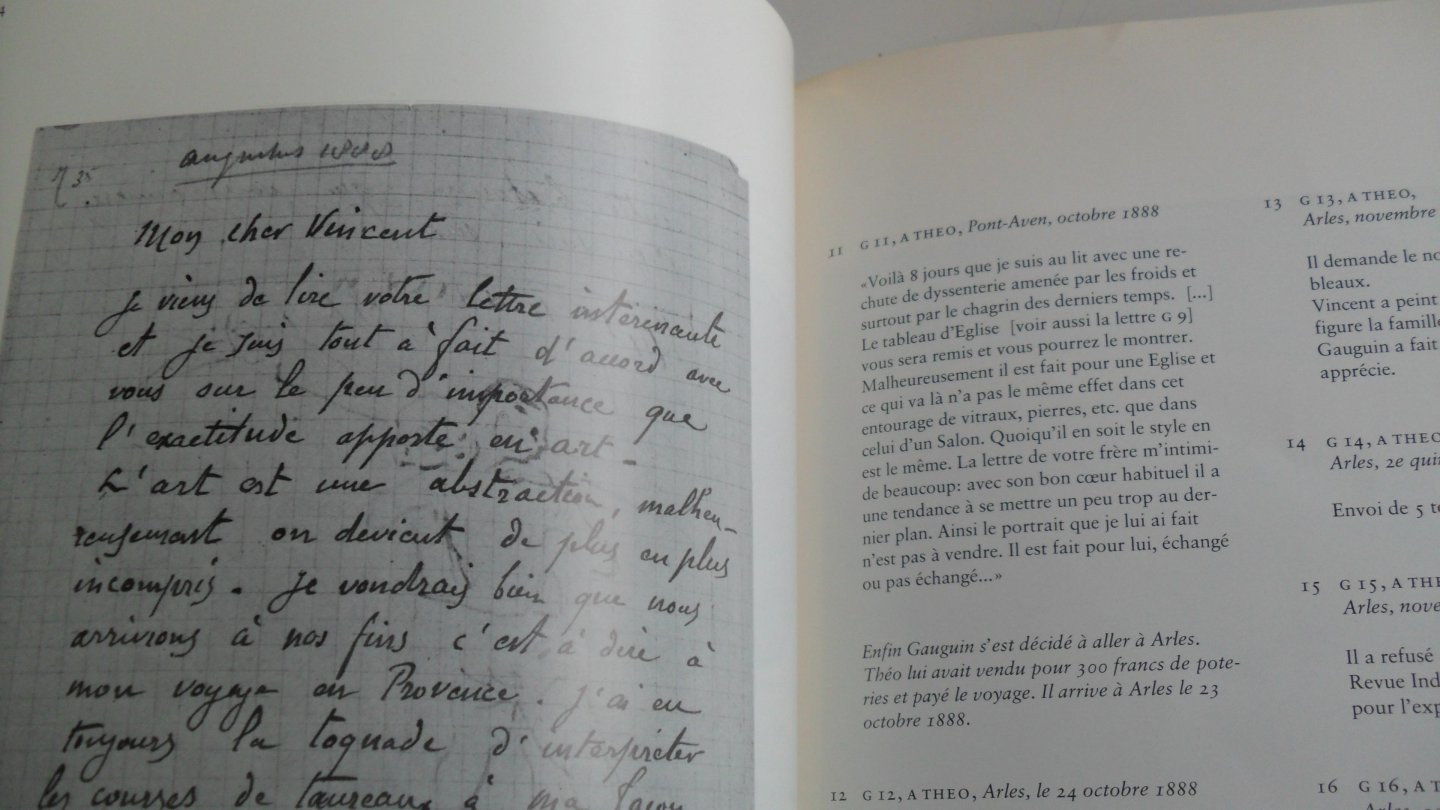 4
augustus 1888
35
Mon cher Vincent
je viens de lire votre lettre intéressante
et je suis tout à fait d'accord avec
vous sur le peu d'importance que
l'exactitude apporte en art -
L'art est une abstraction, malheu-
reusement on devient de plus en plus
incompris. Je voudrais bien que nous
arrivions à nos fins c'est à dire à
mon voyage en Provence. J'ai eu
toujours la toquade d'interpréter
les courses de taureaux à ma façon
11 G 11, A THEO, Pont-Aven, octobre 1888
«Voilà 8 jours que je suis au lit avec une re-
chute de dyssenterie amenée par les froids et
surtout par le chagrin des derniers temps. [...]
Le tableau d'Eglise [voir aussi la lettre G 9]
vous sera remis et vous pourrez le montrer.
Malheureusement il est fait pour une Eglise et
ce qui va là n'a pas le même effet dans cet
entourage de vitraux, pierres, etc. que dans
celui d'un Salon. Quoiqu'il en soit le style en
est le même. La lettre de votre frère m'intimi-
de beaucoup: avec son bon cœur habituel il a
une tendance à se mettre un peu trop au der-
nier plan. Ainsi le portrait que je lui ai fait
n'est pas à vendre. Il est fait pour lui, échangé
ou pas échangé...»
Enfin Gauguin s'est décidé à aller à Arles.
Théo lui avait vendu pour 300 francs de pote-
ries et payé le voyage. Il arrive à Arles le 23
octobre 1888.
12 G 12, A THEO, Arles, le 24 octobre 1888
13 G 13, A THEO,
Arles, novembre
Il demande le no
bleaux.
Vincent a peint
figure la famille
Gauguin a fait
apprécie.
14 G 14, A THEO
Arles, 2e qui
Envoi de 5 to
15 G 15, A THE
Arles, nove
Il a refusé
Revue Ind
pour l'exp
16 G 16, A T